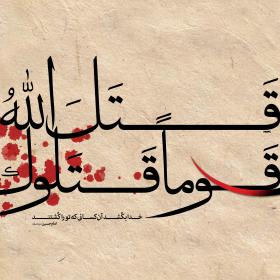 قَتَلَ اللهُ
قَوماً قَتَلوكَ
خدا بکشد آن کسانی که تو را کشتند